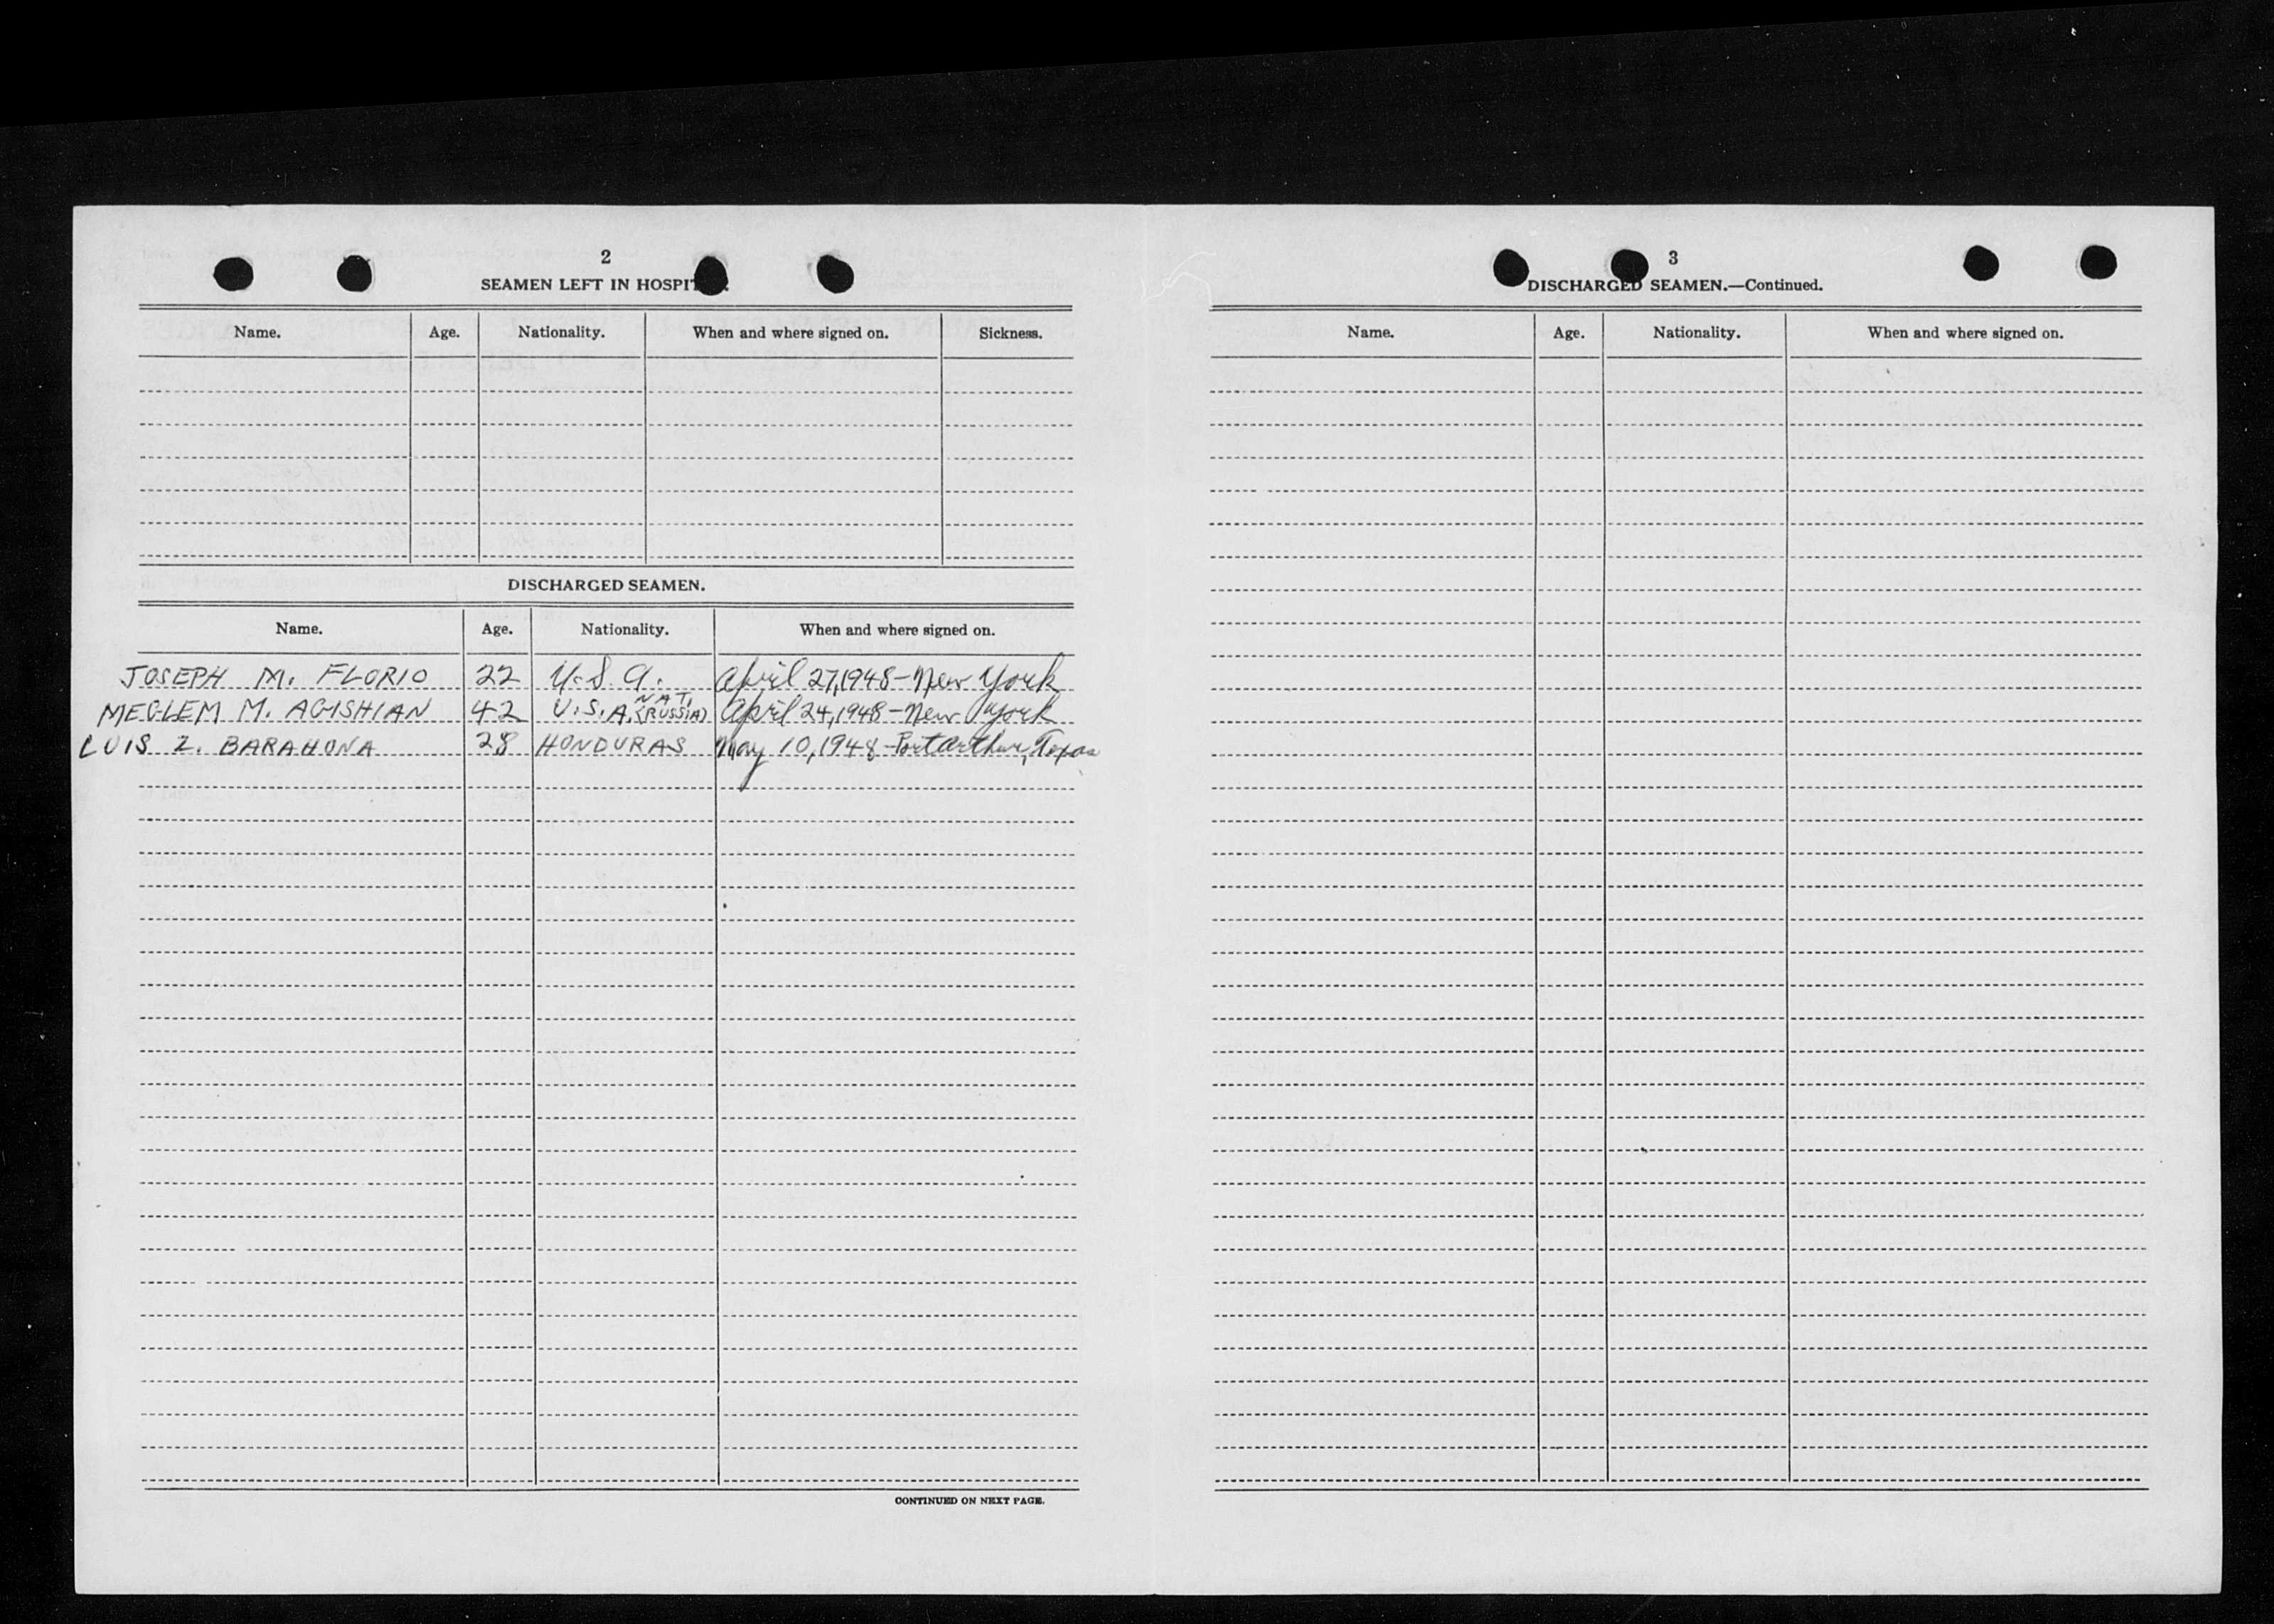 2
SEAMEN LEFT IN HOSPIT
Name. Age. Nationality. When and where signed on. Sickness.
DISCHARGED SEAMEN.
Name. Age. Nationality. When and where signed on.
JOSEPH M. FLORIO 22 U.S.A. April 27, 1948 - New York
MEGLEM M. AGISHIAN 42 U.S.A. NAT. (RUSSIA) April 24, 1948 - New York
LUIS Z. BARAHONA 28 HONDURAS May 10, 1948 - Port Arthur, Texas
CONTINUED ON NEXT PAGE.
3
DISCHARGED SEAMEN.—Continued.
Name. Age. Nationality. When and where signed on.